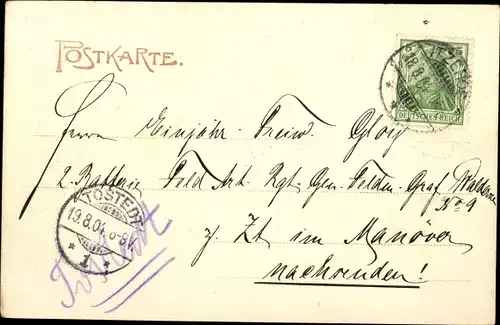 POSTKARTE.
18.8.04
DEUTSCHES REICH
Herrn Einjähr. Freiw. Gloy
2. Batterie Feld Art. Rgt. Gen. Felden. Graf Waldersee
No 9
z. Zt im Manöver
nachsenden!
TOSTEDT
19.8.04. 6-9V.
* 1 *
Tostedt